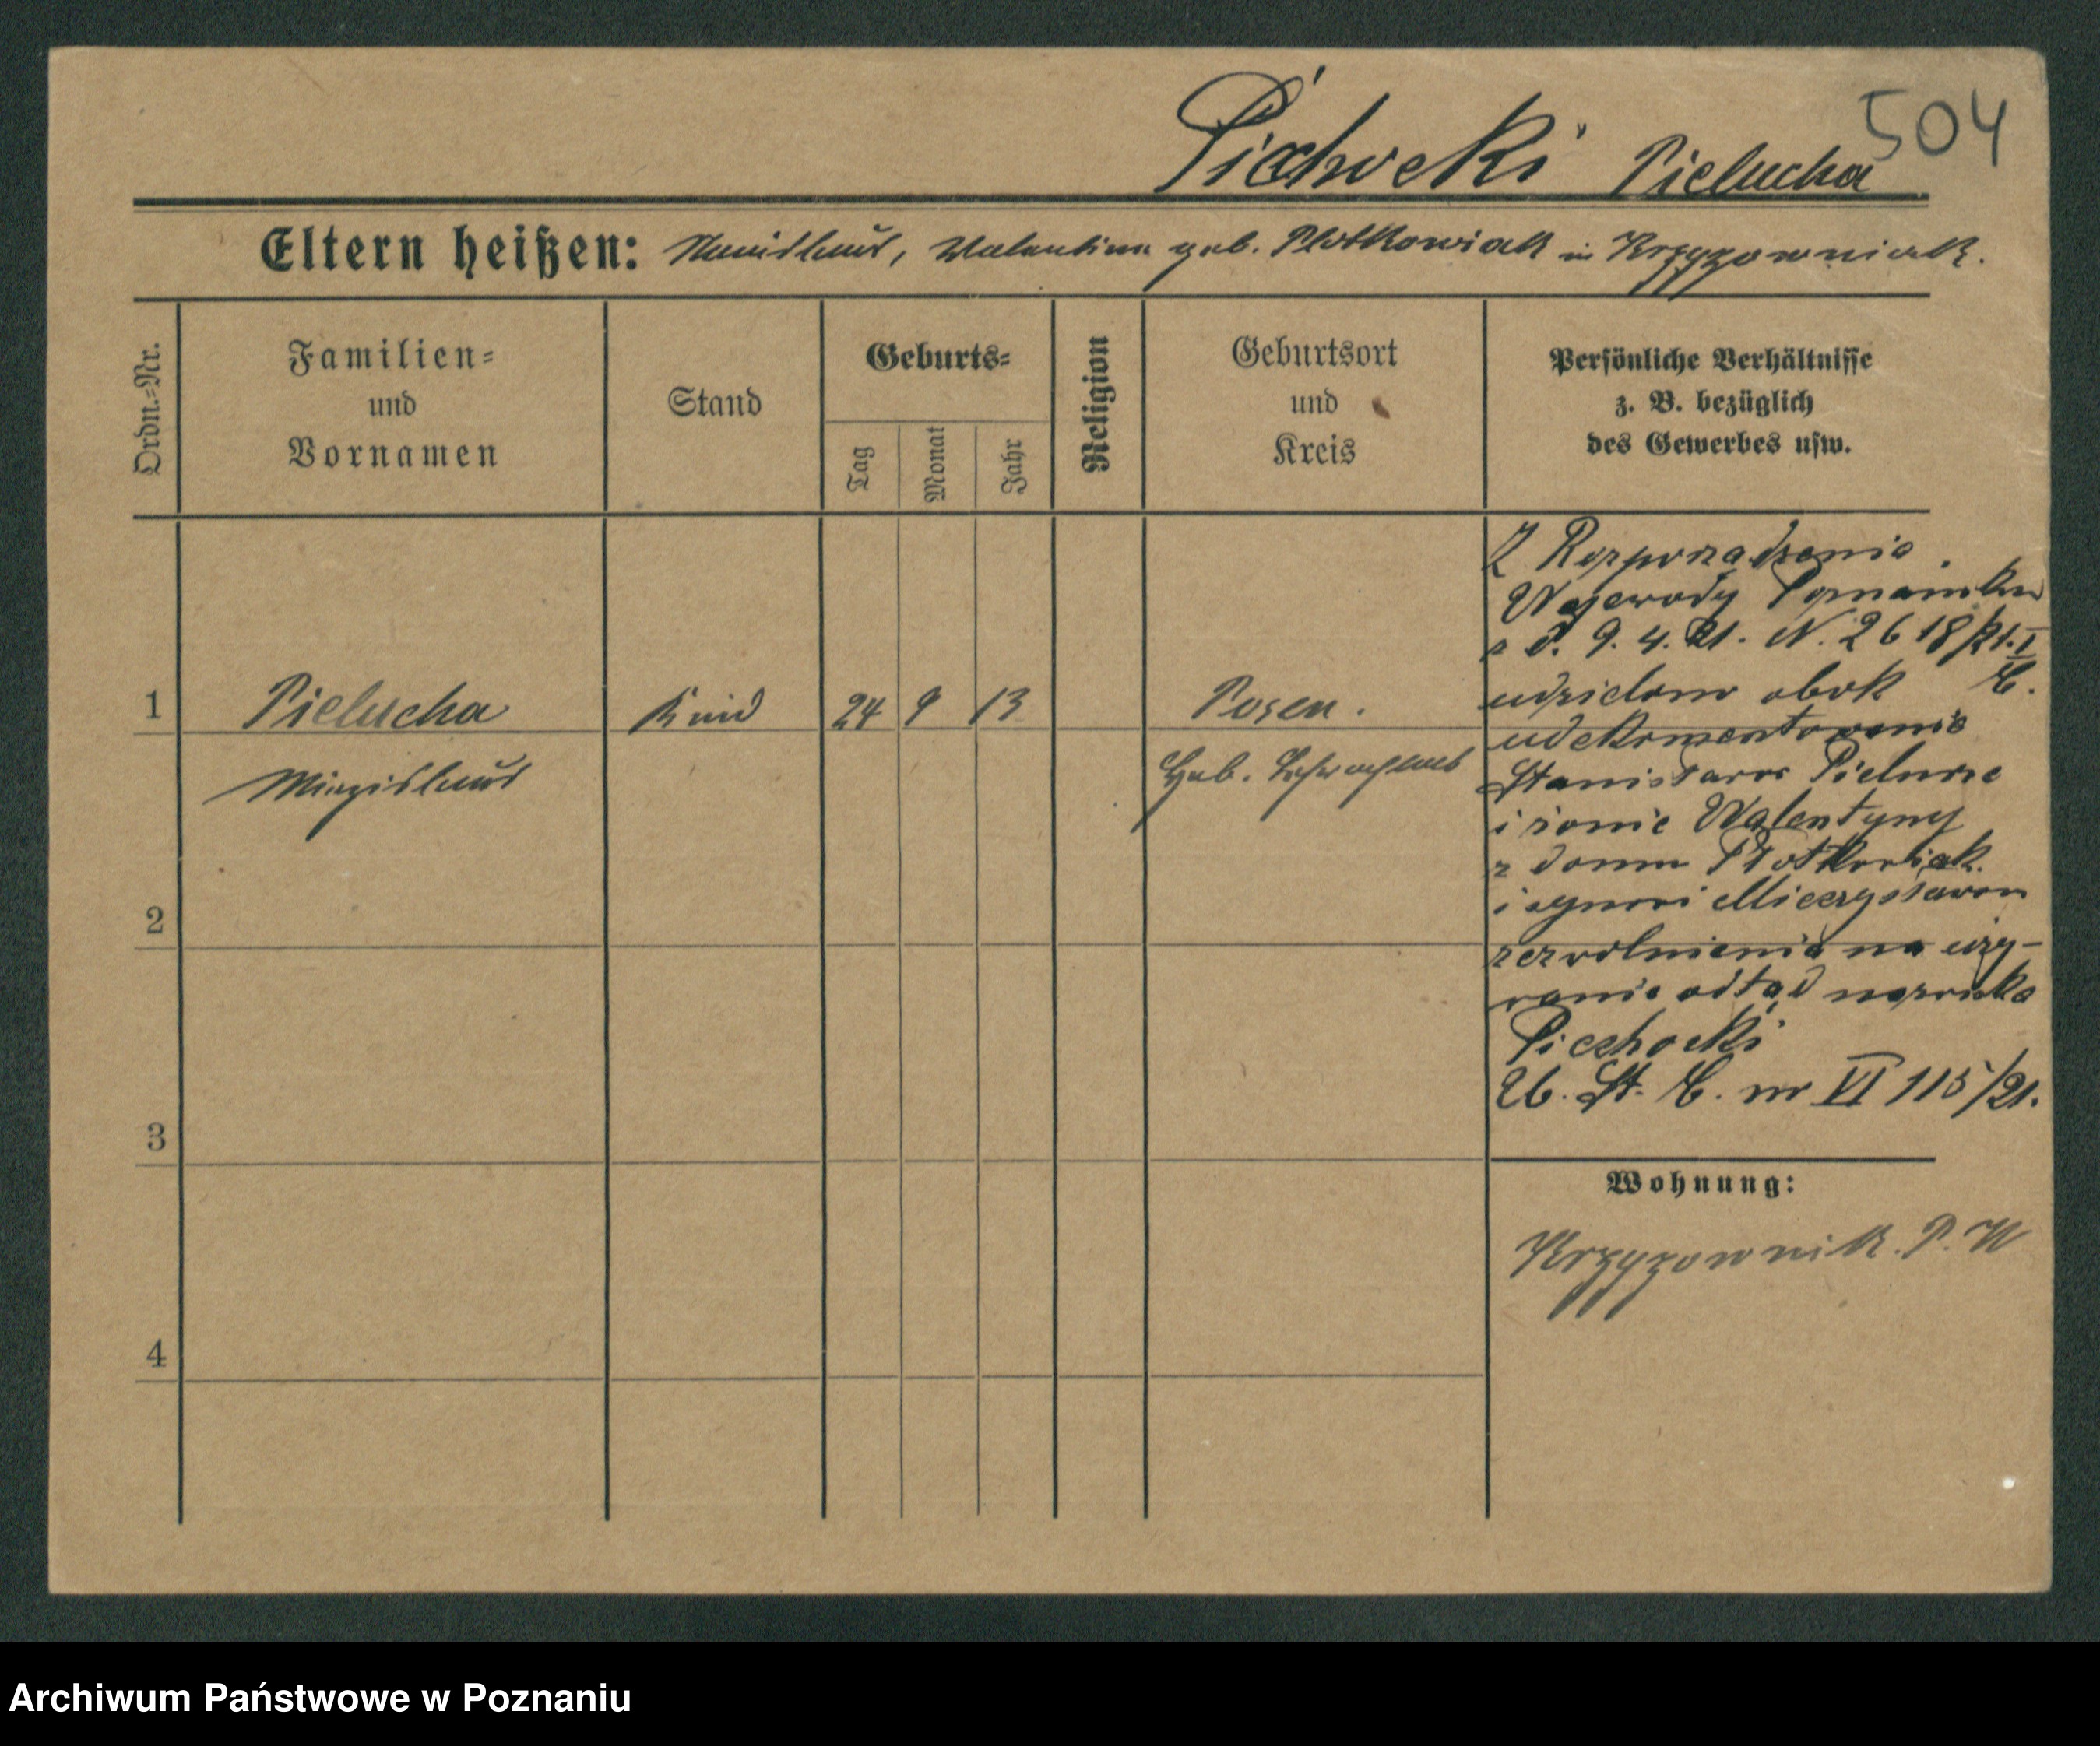 504
Piechocki Pielucha
Eltern heißen: Stanislaus, Valentina geb. Plotkowiak in Krzyzownik.
Ordn.=Nr.
Familien=
und
Vornamen
Stand
Geburts=
Tag
Monat
Jahr
Religion
Geburtsort
und
Kreis
Persönliche Verhältnisse
z. B. bezüglich
des Gewerbes usw.
1
Pielucha
Kind
24
9
13
Posen.
Miezislaus
Geb.
2
3
4
Z Rozporządzenia
Wojewody
z d. 9. 4. 21. N. 2618/21. I
udzielono obok C.
udokumentowanie
Stanisława
i żonie Walentyny
z domu Płotkowiak
i synowi Mieczysławowi
zezwolnienia na uży-
wanie odtąd nazwiska
Piechocki
St. C. nr VI 115/21.
Wohnung:
Krzyzownik. P. W
Archiwum Państwowe w Poznaniu